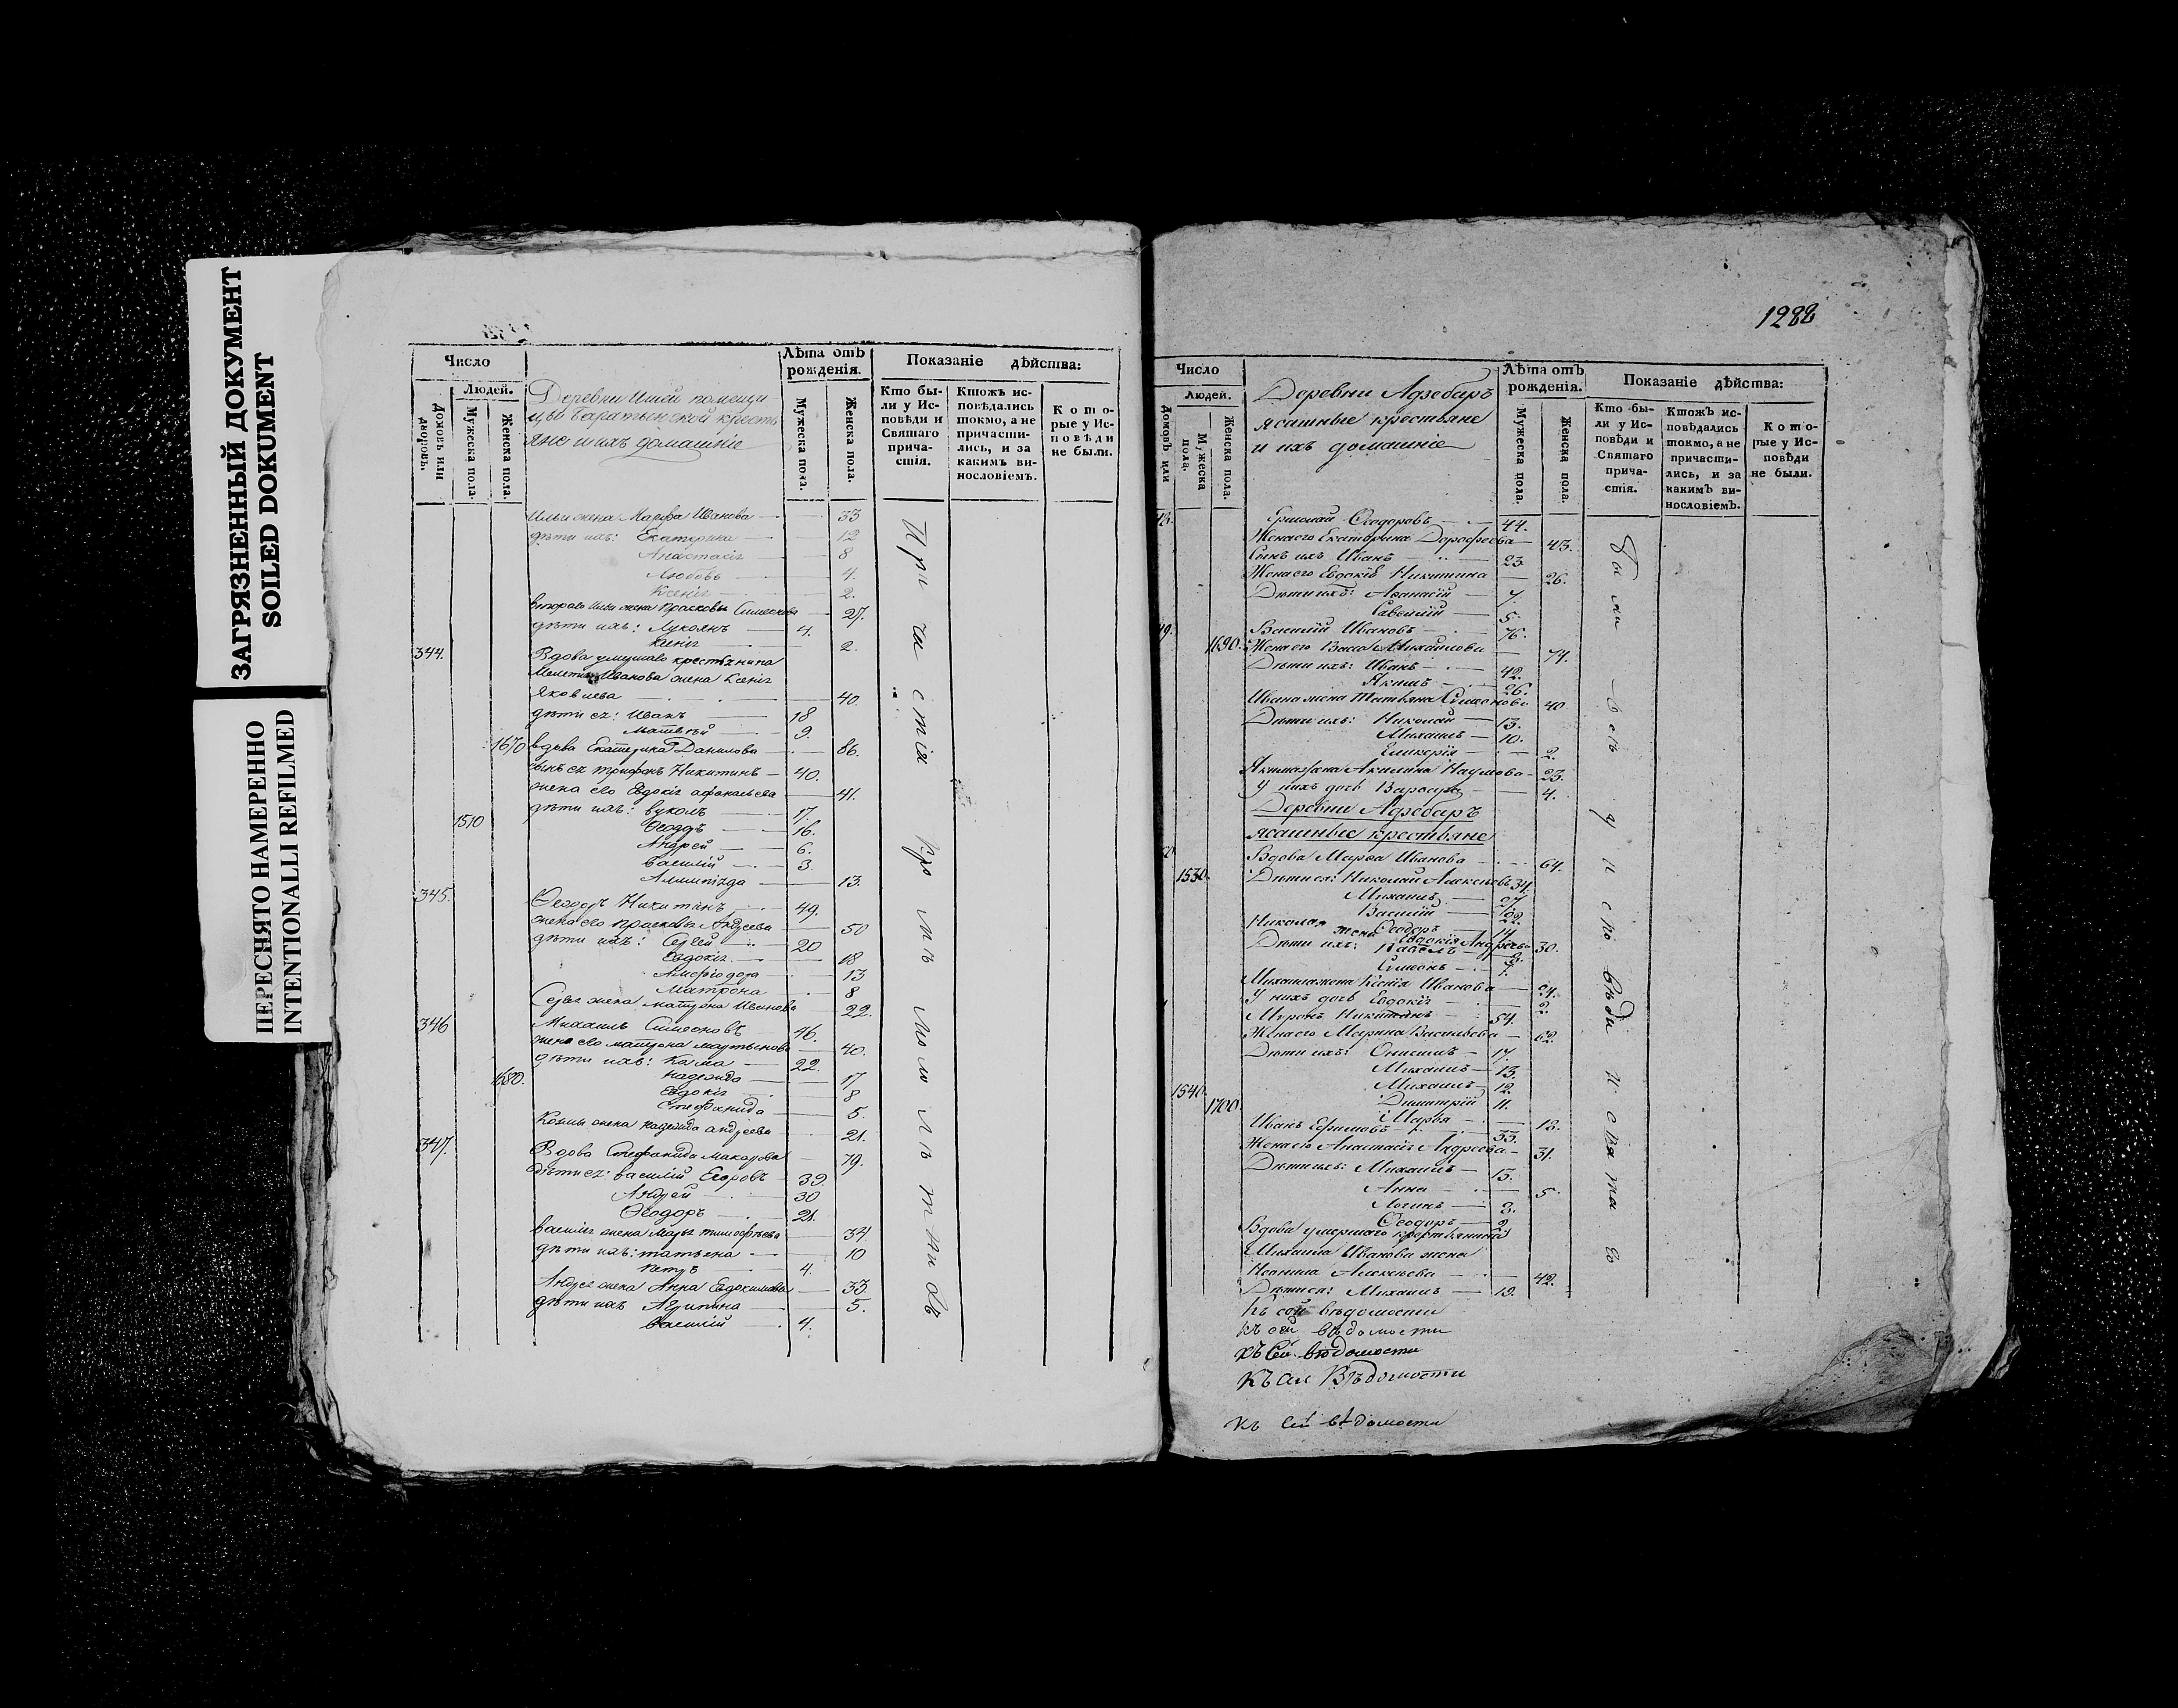 ЗАГРЯЗНЕННЫЙ ДОКУМЕНТ
SOILED DOKUMENT
ПЕРЕСНЯТО НАМЕРЕННО
INTENTIONALLI REFILMED
Число
Людей.
Домовъ или дворовъ.
Мужеска пола.
Женска пола.
Деревни помещи-
цы крестьяне
и ихъ домашніе
Лѣта отъ рожденія.
Мужеска пола.
Женска пола.
Показаніе дѣйства:
Кто бы-
ли у Ис-
повѣди и
Святаго
прича-
стія.
Ктожъ ис-
повѣдались
токмо, а не
причасти-
лись, и за
какимъ ви-
нословіемъ.
Кото-
рые у Ис-
повѣди
не были.
Ильи жена Марфа Иванова 33
дѣти ихъ: Екатерина 12
Анастасія 8
Любовь 4.
Ксенія 2.
втораго Ильи жена Прасковья 27.
дѣти ихъ: Лукоянъ 4.
Ксенія 2.
344. Вдова умершаго крестьянина
Иванова жена Ксенія
Яковлева 40.
дѣти ея: Иванъ 18
Матвѣй 9.
1670 вдова Екатерина Данилова 86.
сынъ ея Трифонъ Никитинъ 40.
жена его Евдокія Афанасьева 41.
дѣти ихъ: Вуколъ 17.
1510 Ѳеодоръ 16.
Андрей 6.
Василій 3.
13.
345. Ѳеодоръ Никитинъ 49.
жена его Прасковья Андреева 50
дѣти ихъ: Сергей 20
Евдокія 18
13
Матрона 8
жена Матрона Иванова 22.
346 Михаилъ Симеоновъ 46.
жена его Матрона Мартынова 40.
дѣти ихъ: Козма 22.
1680. Надежда 17
Евдокія 8
Стефанида 5.
Козмы жена Надежда Андреева 21.
347. Вдова Стефанида Макарова 79.
дѣти ея: Василій Егоровъ 39.
Андрей 30
Ѳеодоръ 21.
Василія жена Марья Тимофѣева 34.
дѣти ихъ: Татьяна 10
Петръ 4.
Андрея жена Анна Евдокимова 33.
дѣти ихъ Агрипина 5.
Василій 4.
1288
Число
Людей.
Домовъ или
Мужеска пола.
Женска пола.
Деревни
ясашные крестьяне
и ихъ домашніе
Лѣта отъ рожденія.
Мужеска пола.
Женска пола.
Показаніе дѣйства:
Кто бы-
ли у Ис-
повѣди и
Святаго
прича-
стія.
Ктожъ ис-
повѣдались
токмо, а не
причасти-
лись, и за
какимъ ви-
нословіемъ.
Кото-
рые у Ис-
повѣди
не были.
Ермолай Ѳеодоровъ 44.
Жена его Екатерина Дорофеева 43.
Сынъ ихъ Иванъ 23
Жена его Евдокія Никитина 26.
Дѣти ихъ: Афанасій 7.
Савелій 5.
Василій Ивановъ 76.
1690. Жена его Васса Михайлова 74.
Дѣти ихъ: Иванъ 42.
Якимъ 26.
Ивана жена Татьяна Симонова 40
Дѣти ихъ: Николай 13.
Михаилъ 10.
Гликерія 2.
Якима жена Акилина Наумова 23.
у нихъ дочь Варвара 4.
Деревни
ясашные крестьяне
Вдова Марѳа Иванова 64.
1530. Дѣти ея: Николай Алексѣевъ 34.
Михаилъ 27
Василій 22.
Ѳеодоръ 14.
Николая жена Евдокія Андреева 30.
Дѣти ихъ: Павелъ
Симеонъ
Михаила жена Ксенія Иванова 24.
у нихъ дочь Евдокія 2.
Миронъ Никитинъ 54.
Жена его Марина Васильева 62.
Дѣти ихъ: Онисимъ 17.
Михаилъ 13.
1540. Михаилъ 12.
1700. Димитрій 11.
Марѳа 13.
Иванъ Ефимовъ 33.
Жена его Анастасія Андреева 31.
Дѣти ихъ: Михаилъ 13.
Анна 5.
Логинъ 3.
Ѳеодоръ 2
Вдова умершаго крестьянина
Михаила Иванова жена
Алексѣева 42.
Дѣти ея: Михаилъ 19.
были у исповѣди и свята го
Къ сей вѣдомости
къ сей вѣдомости
къ сей вѣдомости
Къ сей Вѣдомости
къ сей вѣдомости